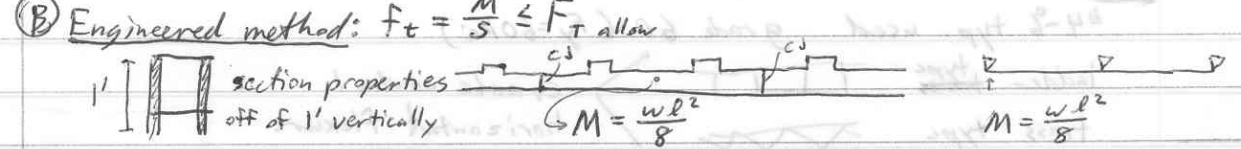 Ⓑ Engineered method: ft = M/S ≤ FT allow
CJ CJ
1' section properties
off of 1' vertically M = wl²/8 M = wl²/8